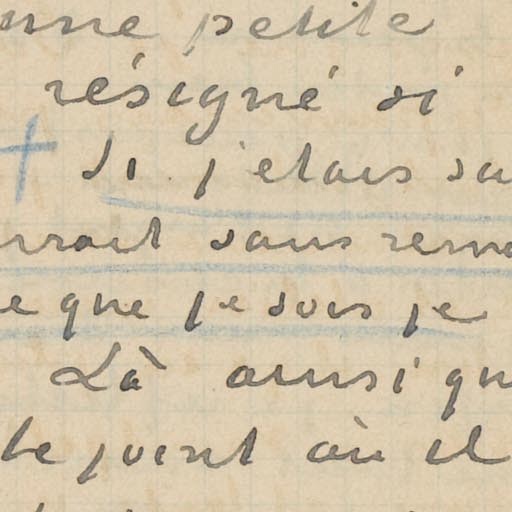 une petite
résigné si
Si j'etais sa
rrait sans remo
e que je suis je
Là ainsi qu
le point où il